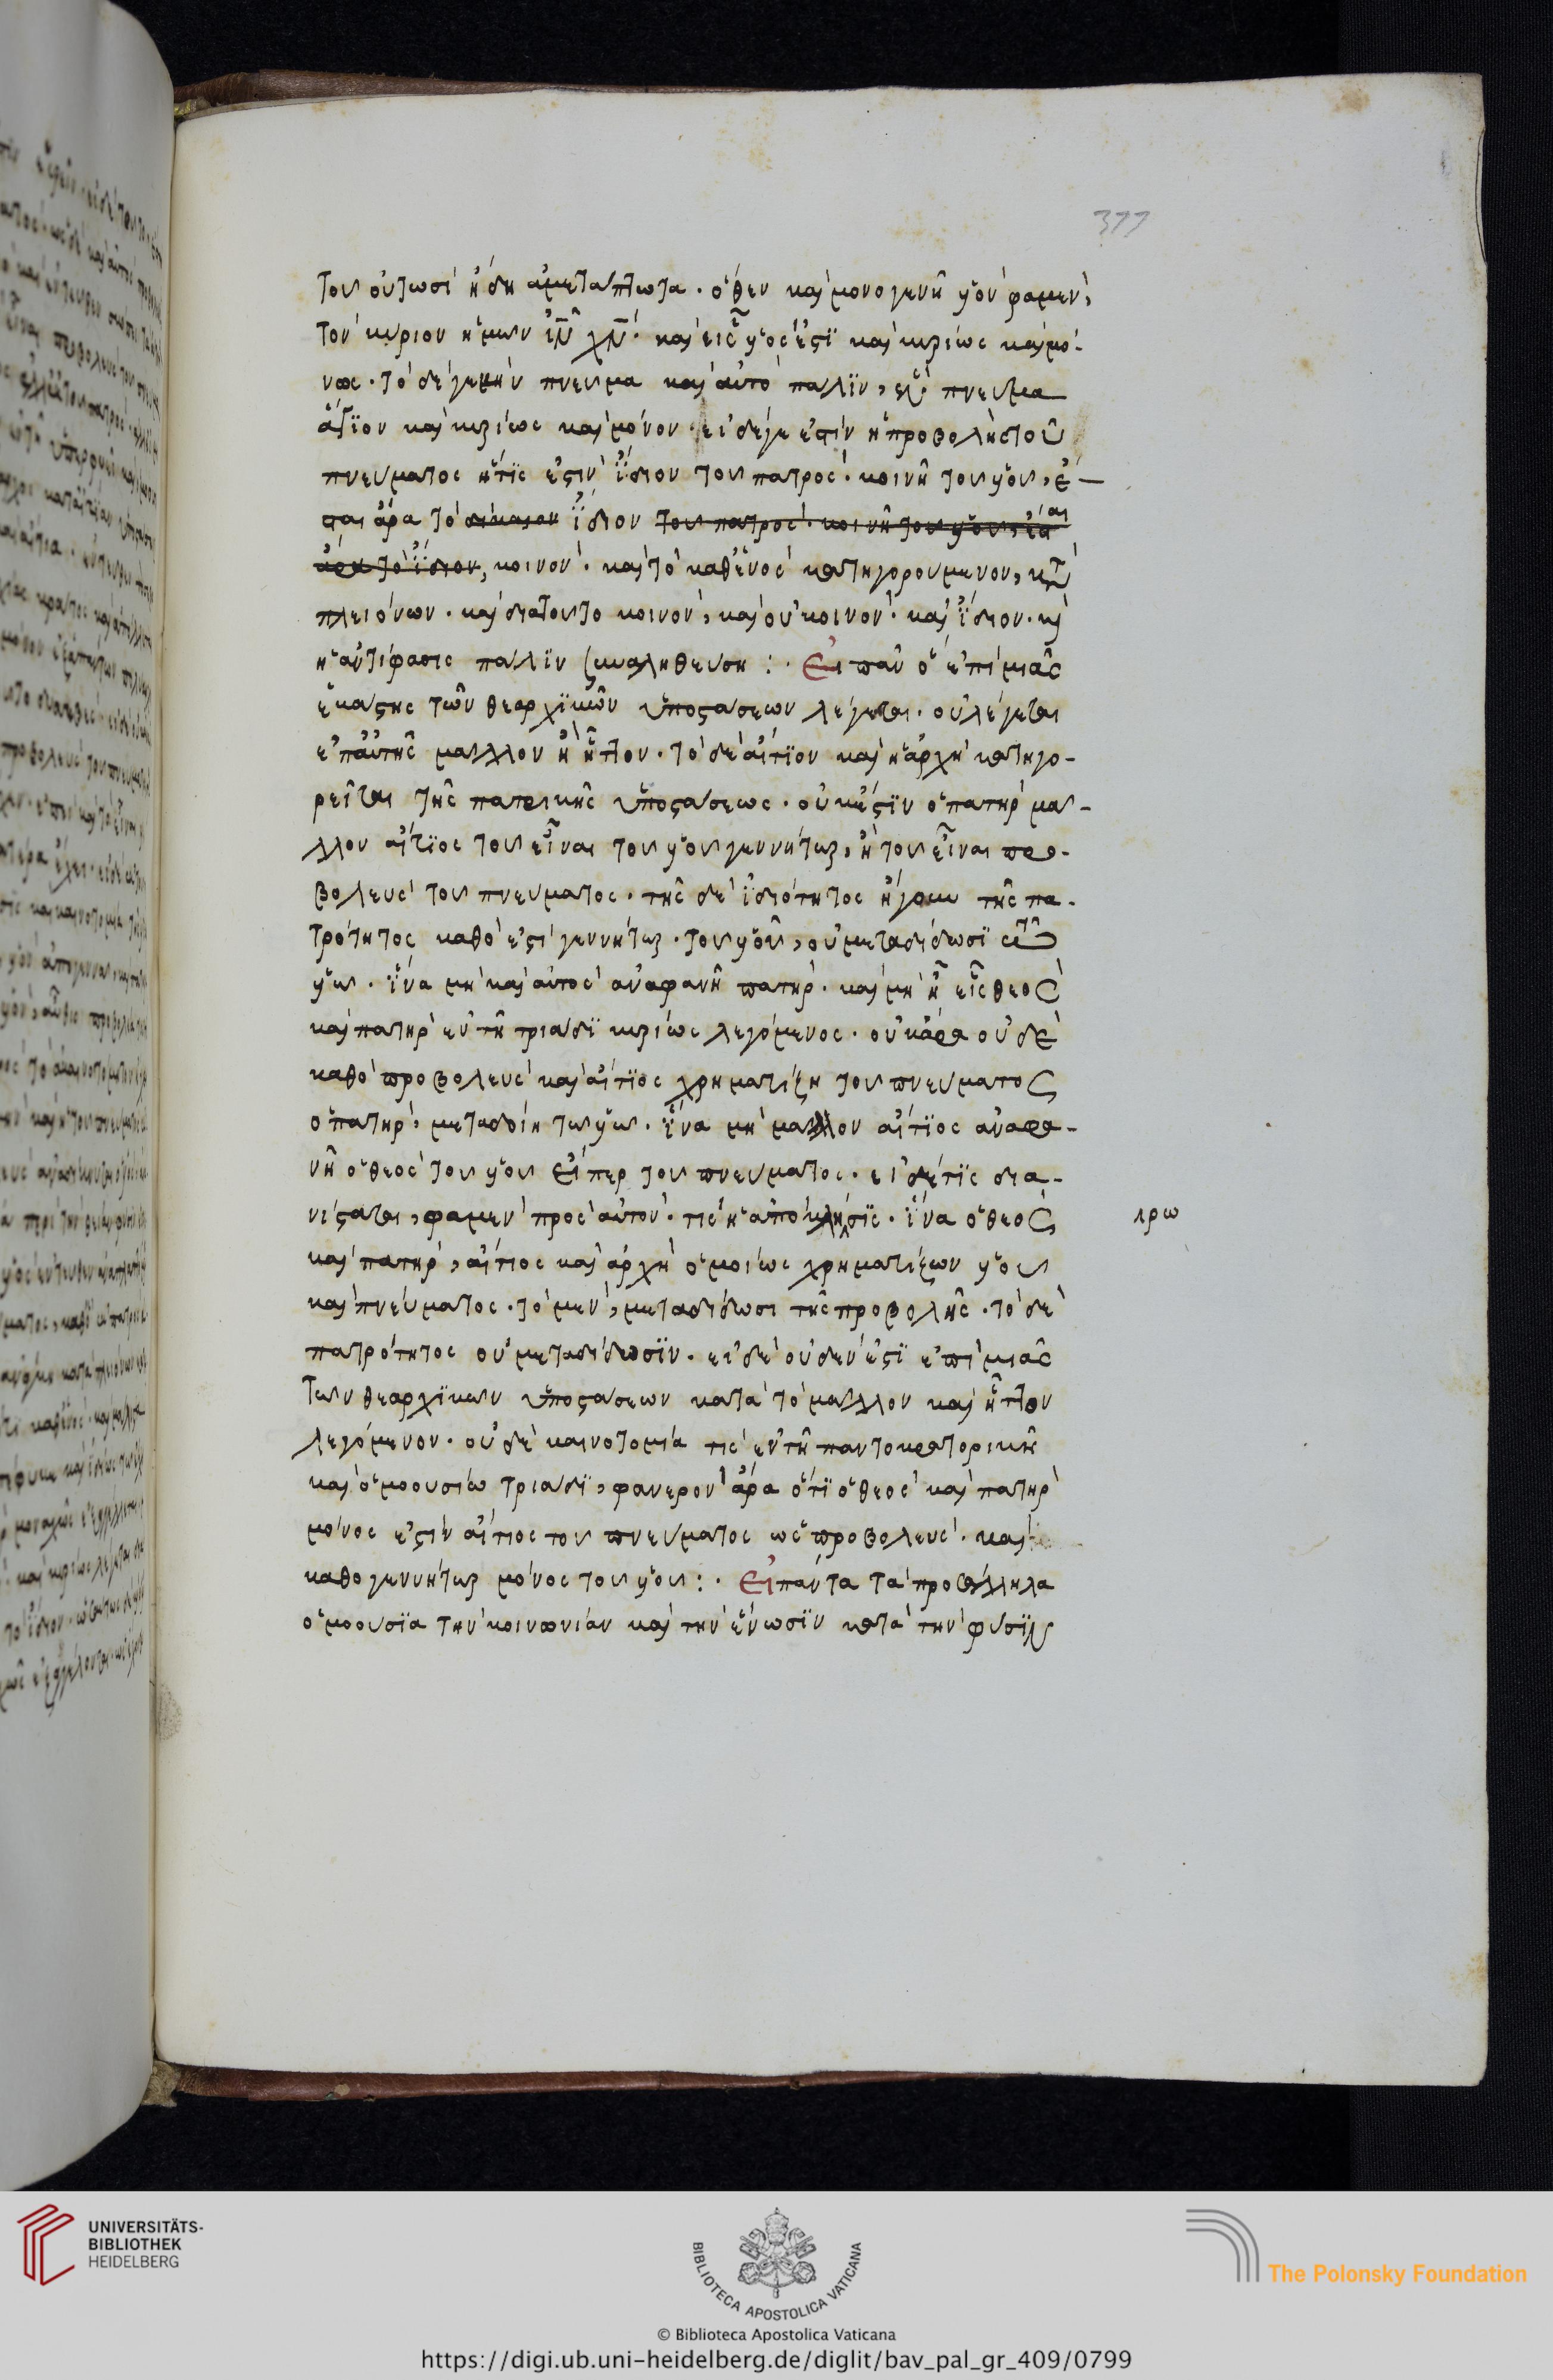 377
του οὑτωσὶ ἤδη ἀμετάπτωτα. ὅθεν καὶ μονογενῆ υἱὸν φαμὲν,
τὸν κύριον ἡμῶν ἰ̅ν̅ χ̅ν̅. καὶ εἷς υἱός ἐστι καὶ κυρίως καὶ μό-
νος. τὸ δέ γε μὴν πνεῦμα καὶ αὐτὸ πάλιν, ἓν πνεῦμα
ἅγιον καὶ κυρίως καὶ μόνον. εἰ δέ γε ἐστὶν ἡ προβολὴ τοῦ
πνεύματος ἥτις ἐστὶν ἴδιον τοῦ πατρὸς. κοινῆ τοῦ υἱοῦ, ἔ-
σται ἄρα τὸ ἴδιον τοῦ πατρὸς. κοινῆ τοῦ υἱοῦ, ἔσται
ἄρα τὸ ἴδιον, κοινὸν. καὶ τὸ καθενὸς κατηγορούμενον, κατὰ
πλειόνων. καὶ διατοῦτο κοινὸν, καὶ οὐ κοινὸν. καὶ ἴδιον. καὶ
ἡ ἀντίφασις πάλιν συναληθεύση:· Εἰ πᾶν ὃ ἐπὶ μιᾶς
ἑκάστης τῶν θεαρχικῶν ὑποστάσεων λέγεται. οὐ λέγεται
ἐπαὐτῆς μᾶλλον ἢ ἧττον. τὸ δὲ αἴτιον καὶ ἡ ἀρχὴ κατηγο-
ρεῖται τῆς πατρικῆς ὑποστάσεως. οὐκ ἔστιν ὁ πατὴρ μᾶ-
λλον αἴτιος τοῦ εἶναι τοῦ υἱοῦ γεννήτωρ, ἢ τοῦ εἶναι προ-
βολεὺς τοῦ πνεύματος. τῆς δὲ ἰδιότητος ἤγουν τῆς πα-
τρότητος καθὸ ἐστὶ γεννήτωρ. τοῦ υἱοῦ, οὐ μεταδίδωσι
υἱῶ. ἵνα μὴ καὶ αὐτὸς ἀναφανῆ πατὴρ. καὶ μὴ ἦ εἷς θεὸς
καὶ πατὴρ ἐν τῆ τριάδι κυρίως λεγόμενος. οὐκ ἄρα οὐδὲ
καθὸ προβολεὺς καὶ αἴτιος χρηματίζη τοῦ πνεύματος
ὁ πατὴρ, μεταδοίη τῶ υἱῶ. ἵνα μὴ μᾶλλον αἴτιος ἀναφα-
νῆ ὁ θεὸς τοῦ υἱοῦ εἴπερ τοῦ πνεύματος. εἰ δέ τις δια-
νίσταται, φαμὲν πρὸς αὐτὸν. τίς ἡ ἀποκλήρωσις. ἵνα ὁ θεὸς
ρω
καὶ πατὴρ, αἴτιος καὶ ἀρχὴ ὁμοίως χρηματίζων υἱοῦ
καὶ πνεύματος. τὸ μὲν, μεταδίδωσι τῆς προβολῆς. τὸ δὲ
πατρότητος οὐ μεταδίδωσιν. εἰ δὲ οὐδὲν ἐστὶ ἐπὶ μιᾶς
τῶν θεαρχικῶν ὑποστάσεων κατὰ τὸ μᾶλλον καὶ ἧττον
λεγόμενον. οὐδὲ καινοτομία τίς ἐν τῆ παντοκρατορικῆ
καὶ ὁμοουσίω τριάδι, φανερὸν ἄρα ὅτι ὁ θεὸς καὶ πατὴρ
μόνος ἐστὶν αἴτιος τοῦ πνεύματος ὡς προβολεὺς. καὶ
καθο γεννήτωρ μόνος τοῦ υἱοῦ:· Εἰ πάντα τὰ προσάλληλα
ὁμοούσια τὴν κοινωνίαν καὶ τὴν ἕνωσιν κατὰ τὴν φύσιν
UNIVERSITÄTS-
BIBLIOTHEK
HEIDELBERG
BIBLIOTECA APOSTOLICA VATICANA
The Polonsky Foundation
© Biblioteca Apostolica Vaticana
https://digi.ub.uni-heidelberg.de/diglit/bav_pal_gr_409/0799